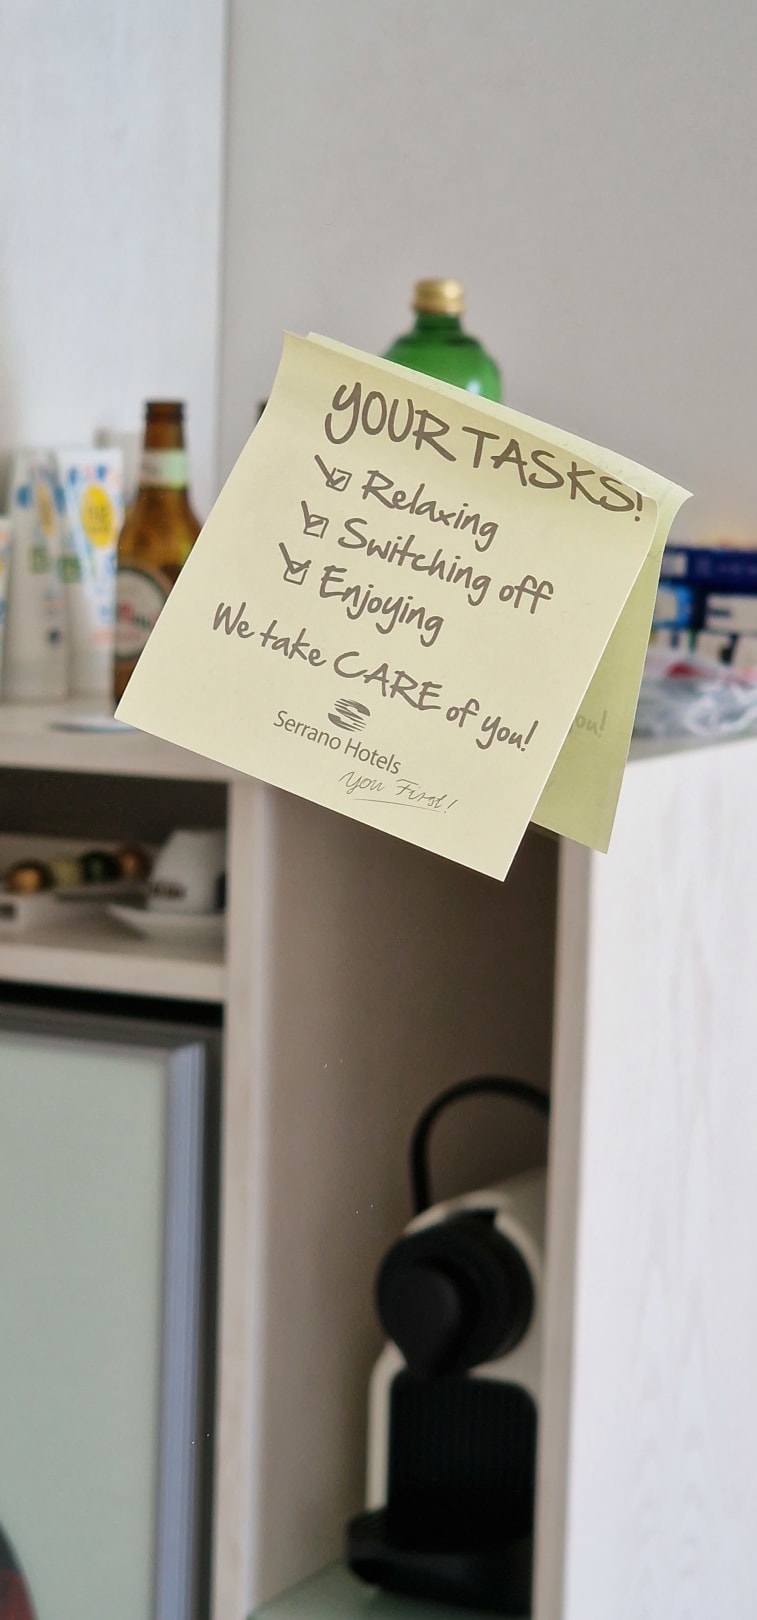 YOUR TASKS!
Relaxing
Switching off
Enjoying
We take CARE of you!
Serrano Hotels
you First!
ou!